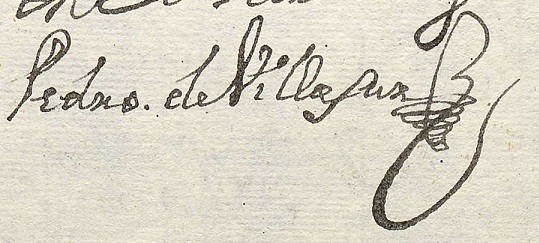 Pedro. de Villasur